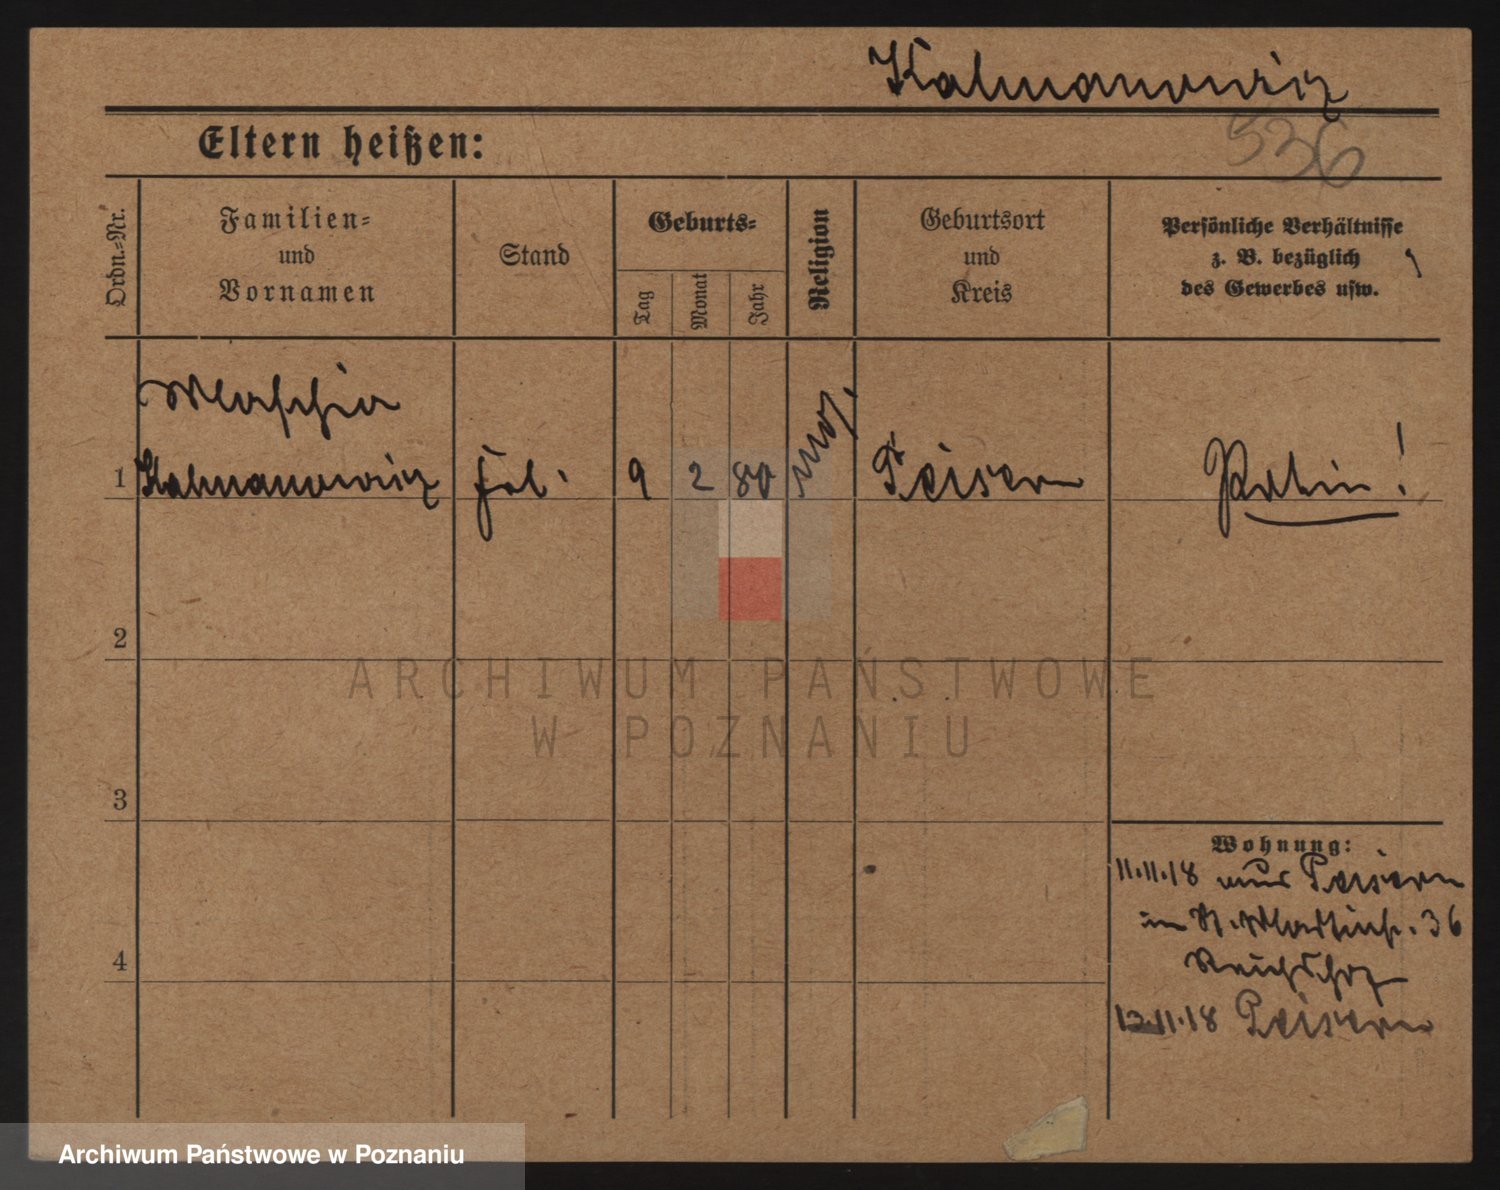 Kalmanowicz
536
Eltern heißen:
Ordn.-Nr.
Familien-
und
Vornamen
Stand
Geburts-
Tag
Monat
Jahr
Religion
Geburtsort
und
Kreis
Persönliche Verhältnisse
z. B. bezüglich
des Gewerbes usw.
1
Kalmanowicz
9
2
80
mos.
Peisern
Polin!
2
3
4
Wohnung:
11.11.18 aus Peisern
in St. Martinstr. 36
Reichshof
12.11.18 Peisern
ARCHIWUM PAŃSTWOWE
W POZNANIU
Archiwum Państwowe w Poznaniu